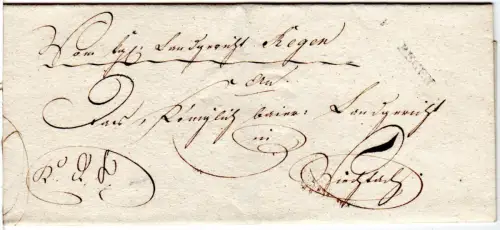 Vom kgl: Landgericht Regen
REGEN
An
Das Königlich baier: Landgericht
in
R. S.
Viechtach